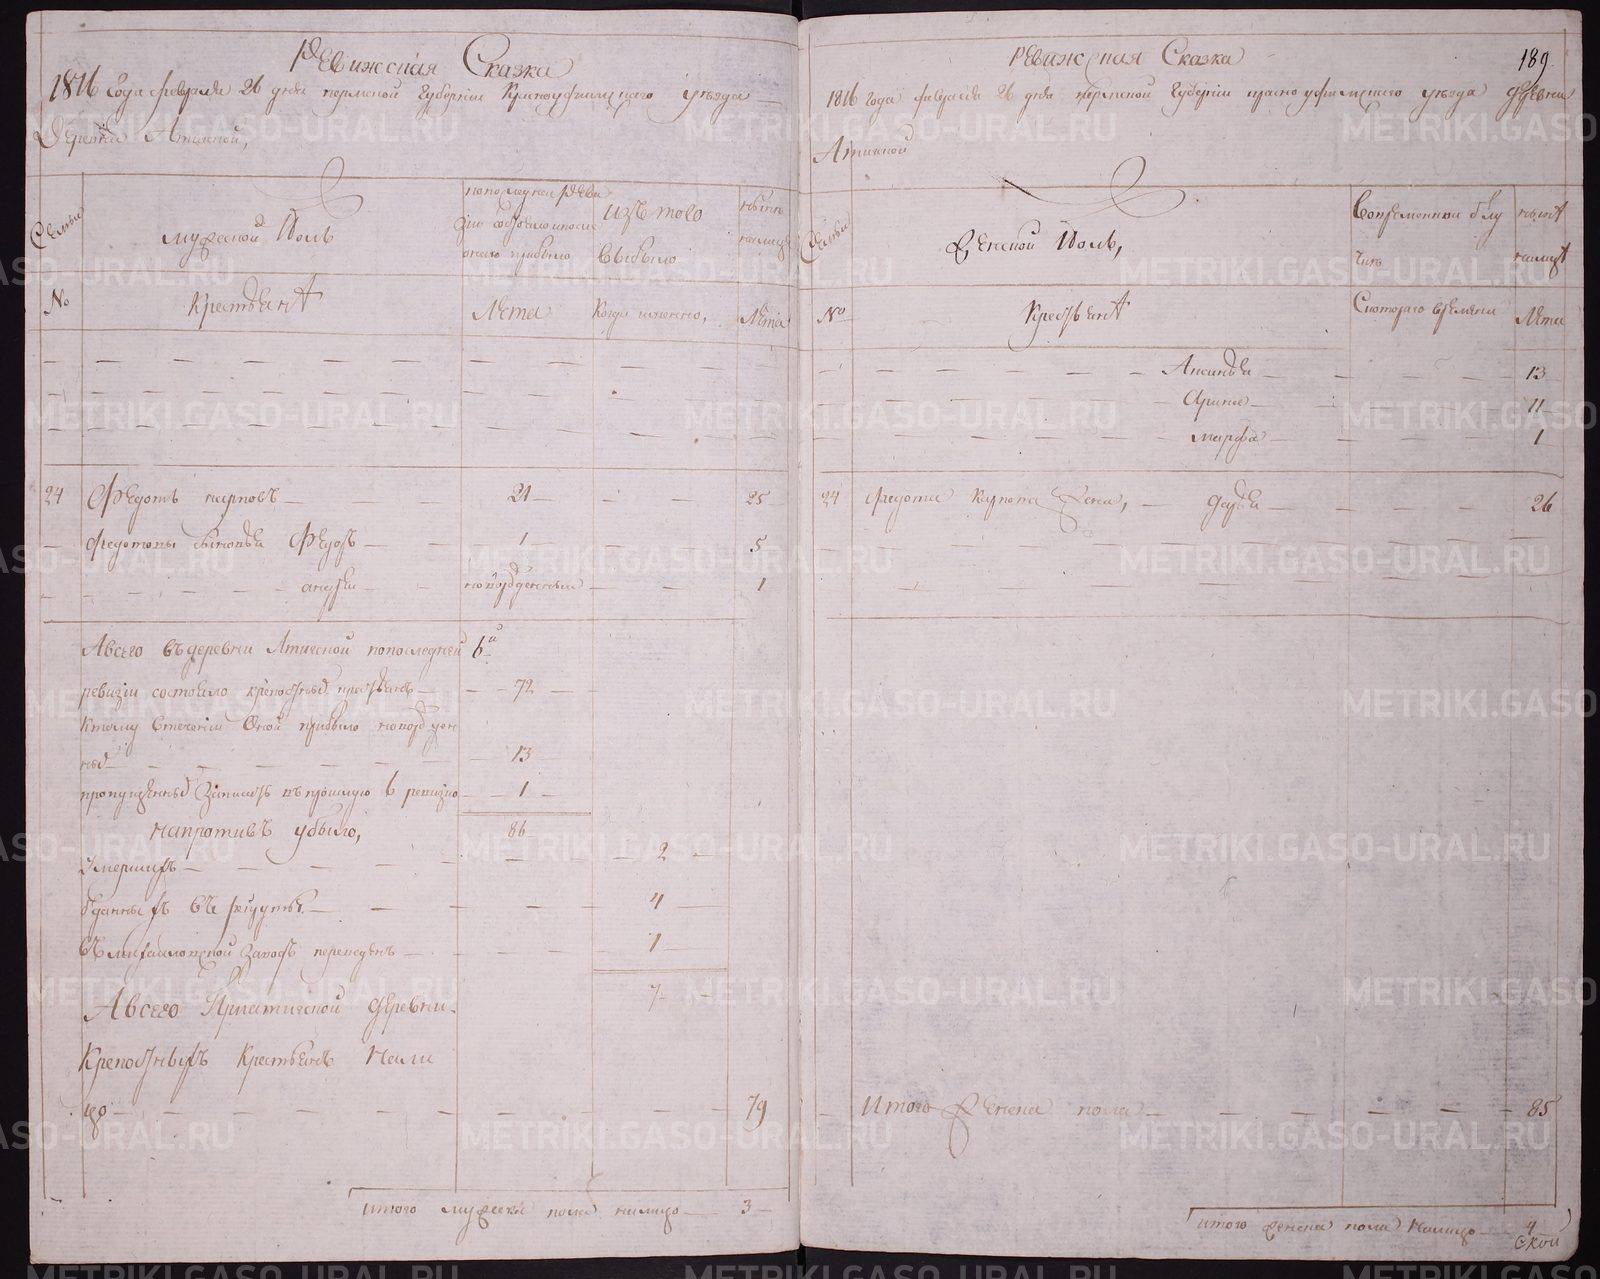 Ревижская Сказка
1816 года февраля 26 дня пермской Губернии Красноуфимскаго уезда
Деревни Атижной,
Семьи
мужеской Полъ
по последней реви
зии состояло и после
оной прибыло
Изъ того
выбыло
ныне
налицо
№
Крестьянѣ
Лета
Когда именно,
Лета
24 Федотъ карповъ 21 25
Федотовы сыновья Федоръ 1 5
андрей новорожденный 1
А всего въ деревни Атижской по последней 6й
ревизии состояло крепостных крестьянъ 72
к тому в течении Оной прибыло новорожден
ных 13
пропущенных Записать въ прошлую 6 ревизию 1
напротивъ убыло, 86
Умершихъ 2
Отданныхъ въ рекруты 4
въ михайловской Заводъ переведенъ 1
7
А всего При атижской деревни
Крепостныхъ Крестьянъ Нали
цо 79
итого мужеска пола налицо 3
Ревижская Сказка
189
1816 года февраля 26 дня пермской Губернии красноуфимскаго уезда деревни
Атижной
Семьи
Женской Полъ,
Во временной отлу
чке
ныне
налицо
№
Крестьянѣ
С котораго времени
Лета
Аксинья 13
Арина 11
марфа 1
24 Федота Карпова Жена, дарья 26
Итого Женска пола 85
итого женска пола Налицо 4
Ской
METRIKI.GASO-URAL.RU